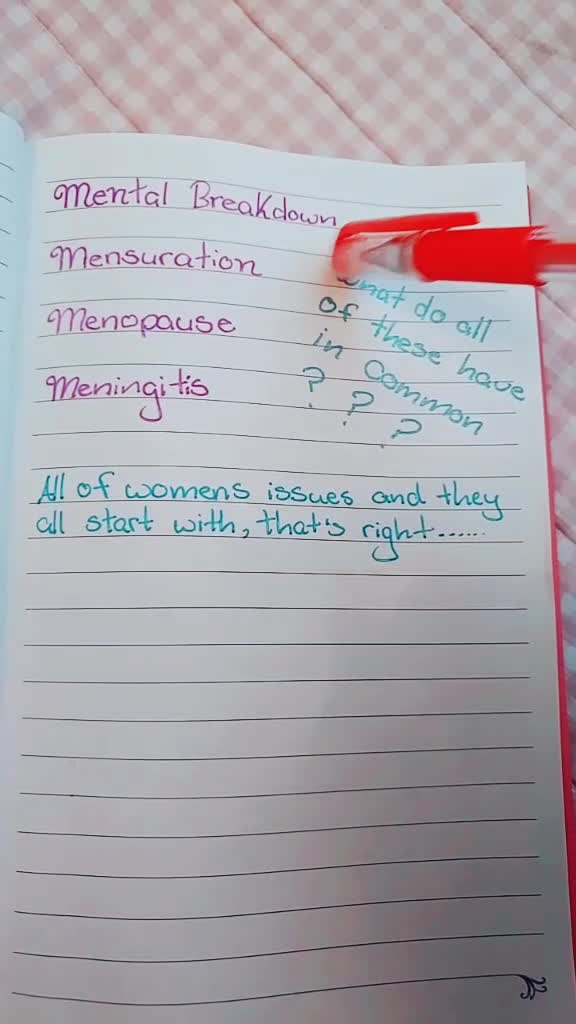 Mental Breakdown
Mensuration
Menopause
Meningitis
what do all
of these have
in Common
? ? ?
All of womens issues and they
all start with, that's right......